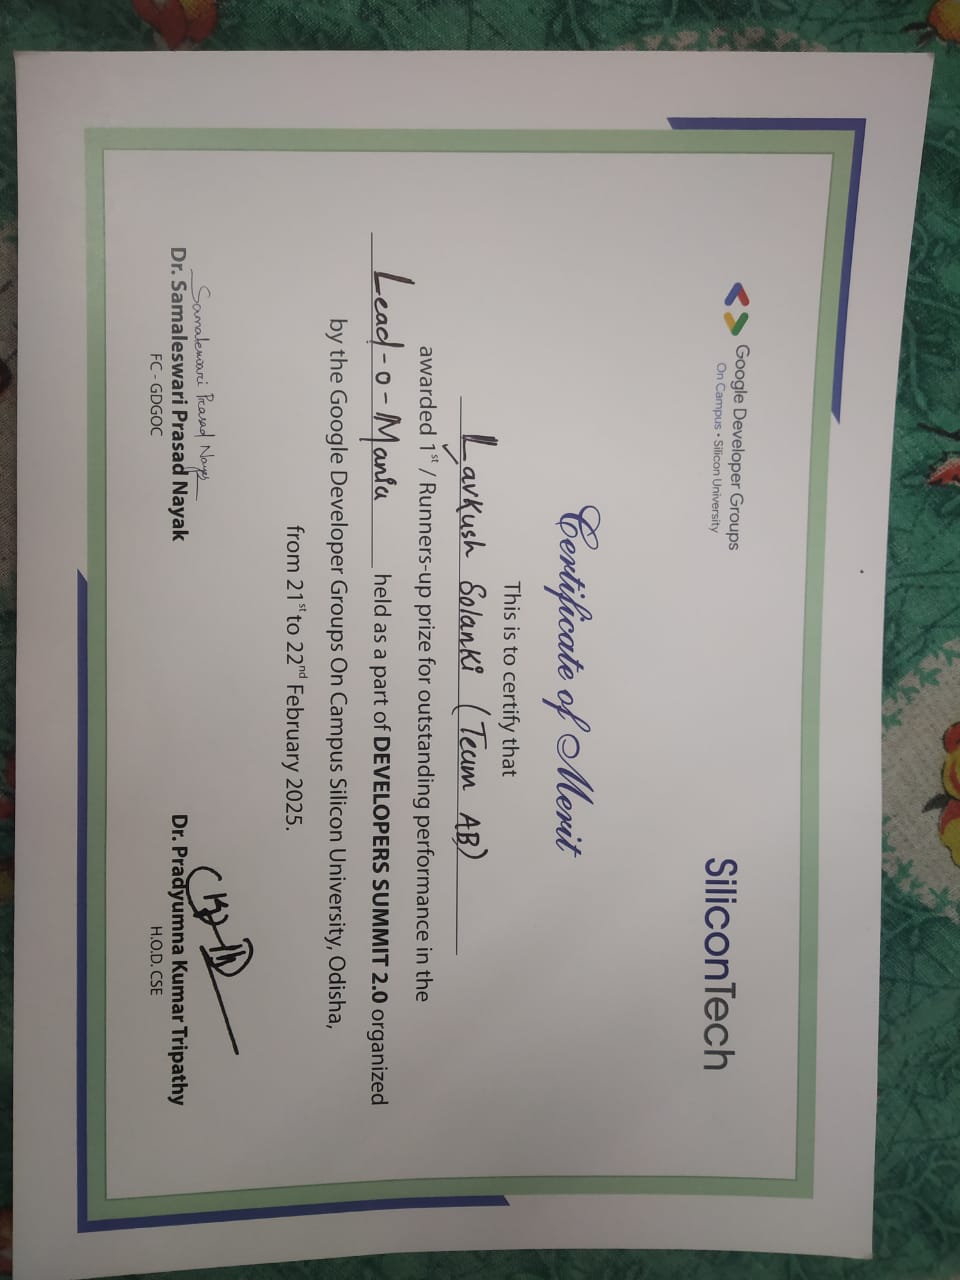 Google Developer Groups
On Campus • Silicon University
SiliconTech
Certificate of Merit
This is to certify that
Lavkush Solanki (Team AB)
awarded 1st / Runners-up prize for outstanding performance in the
Lead-o-Mania held as a part of DEVELOPERS SUMMIT 2.0 organized
by the Google Developer Groups On Campus Silicon University, Odisha,
from 21st to 22nd February 2025.
Samaleswari Prasad Nayak
Dr. Samaleswari Prasad Nayak
FC - GDGOC
Dr. Pradyumna Kumar Tripathy
H.O.D. CSE